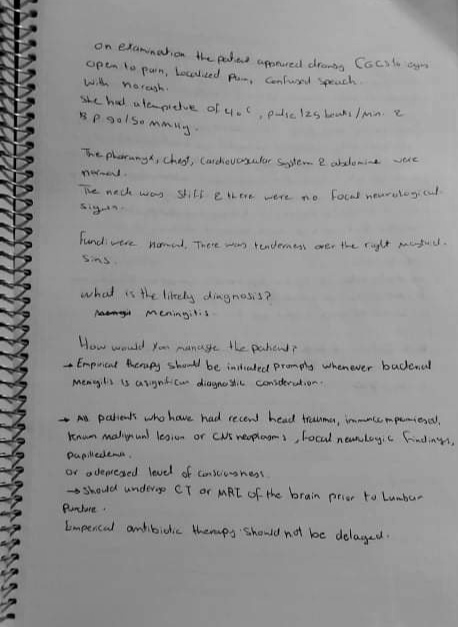 on examination the patient appeared drowsy (GCS 10 eyes
open to pain, Localized Pain, Confused speach.
with no rash.
She had a tempretue of 40°C, pulse 125 beats/min. &
BP 90/50 mmHg.
The pharanyx, chest, cardiovascular system & abdomine were
normal.
The neck was stiff & there were no focal neurological
signs.
Fundi were normal. There was tenderness over the right mastoid.
Sins.
what is the likely diagnosis?
meningitis
How would you manage the patient?
→ Empirical therapy should be initiated promptly whenever bacterial
Mengitis is a significan diagnostic consideration.
→ All patients who have had recent head trauma,
known malignant lesion or CNS neoplasms, focal neurologic findings,
papilledema.
or a depressed level of consciousness.
→ Should undergo CT or MRI of the brain prior to Lumbar
Puncture.
Emperical antibiotic therapy should not be delayed.